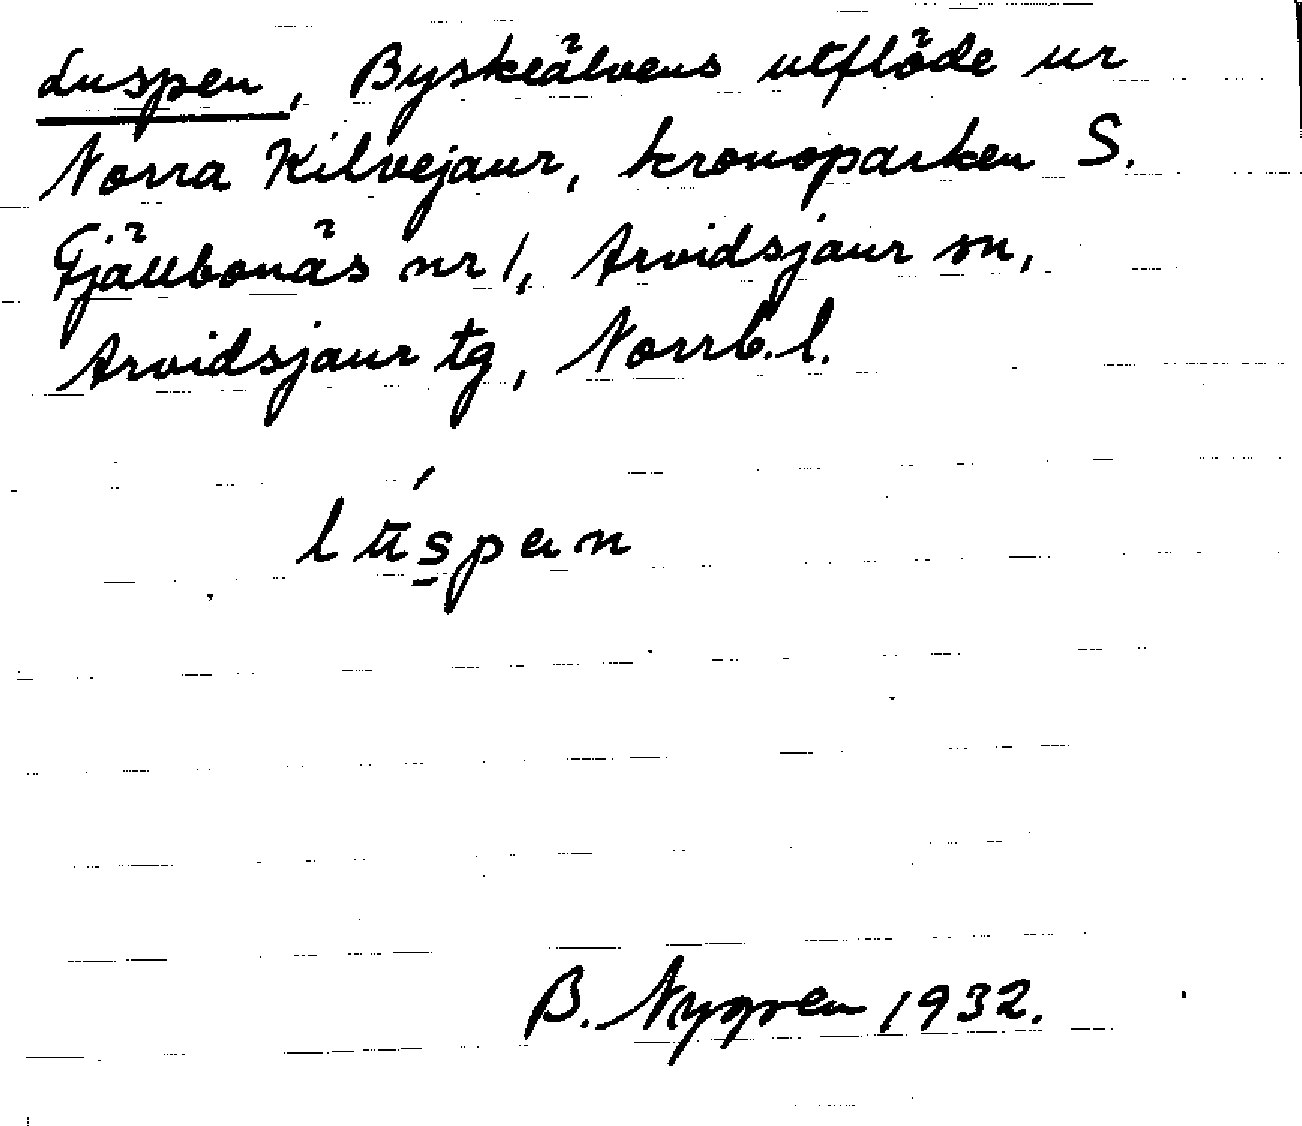 Luspen, Byskeälvens utflöde ur
Norra Kilvejaur, kronoparken S.
Fjällbonäs nr 1, Arvidsjaur sn,
Arvidsjaur tg, Norrb. l.
B. Nygren 1932.